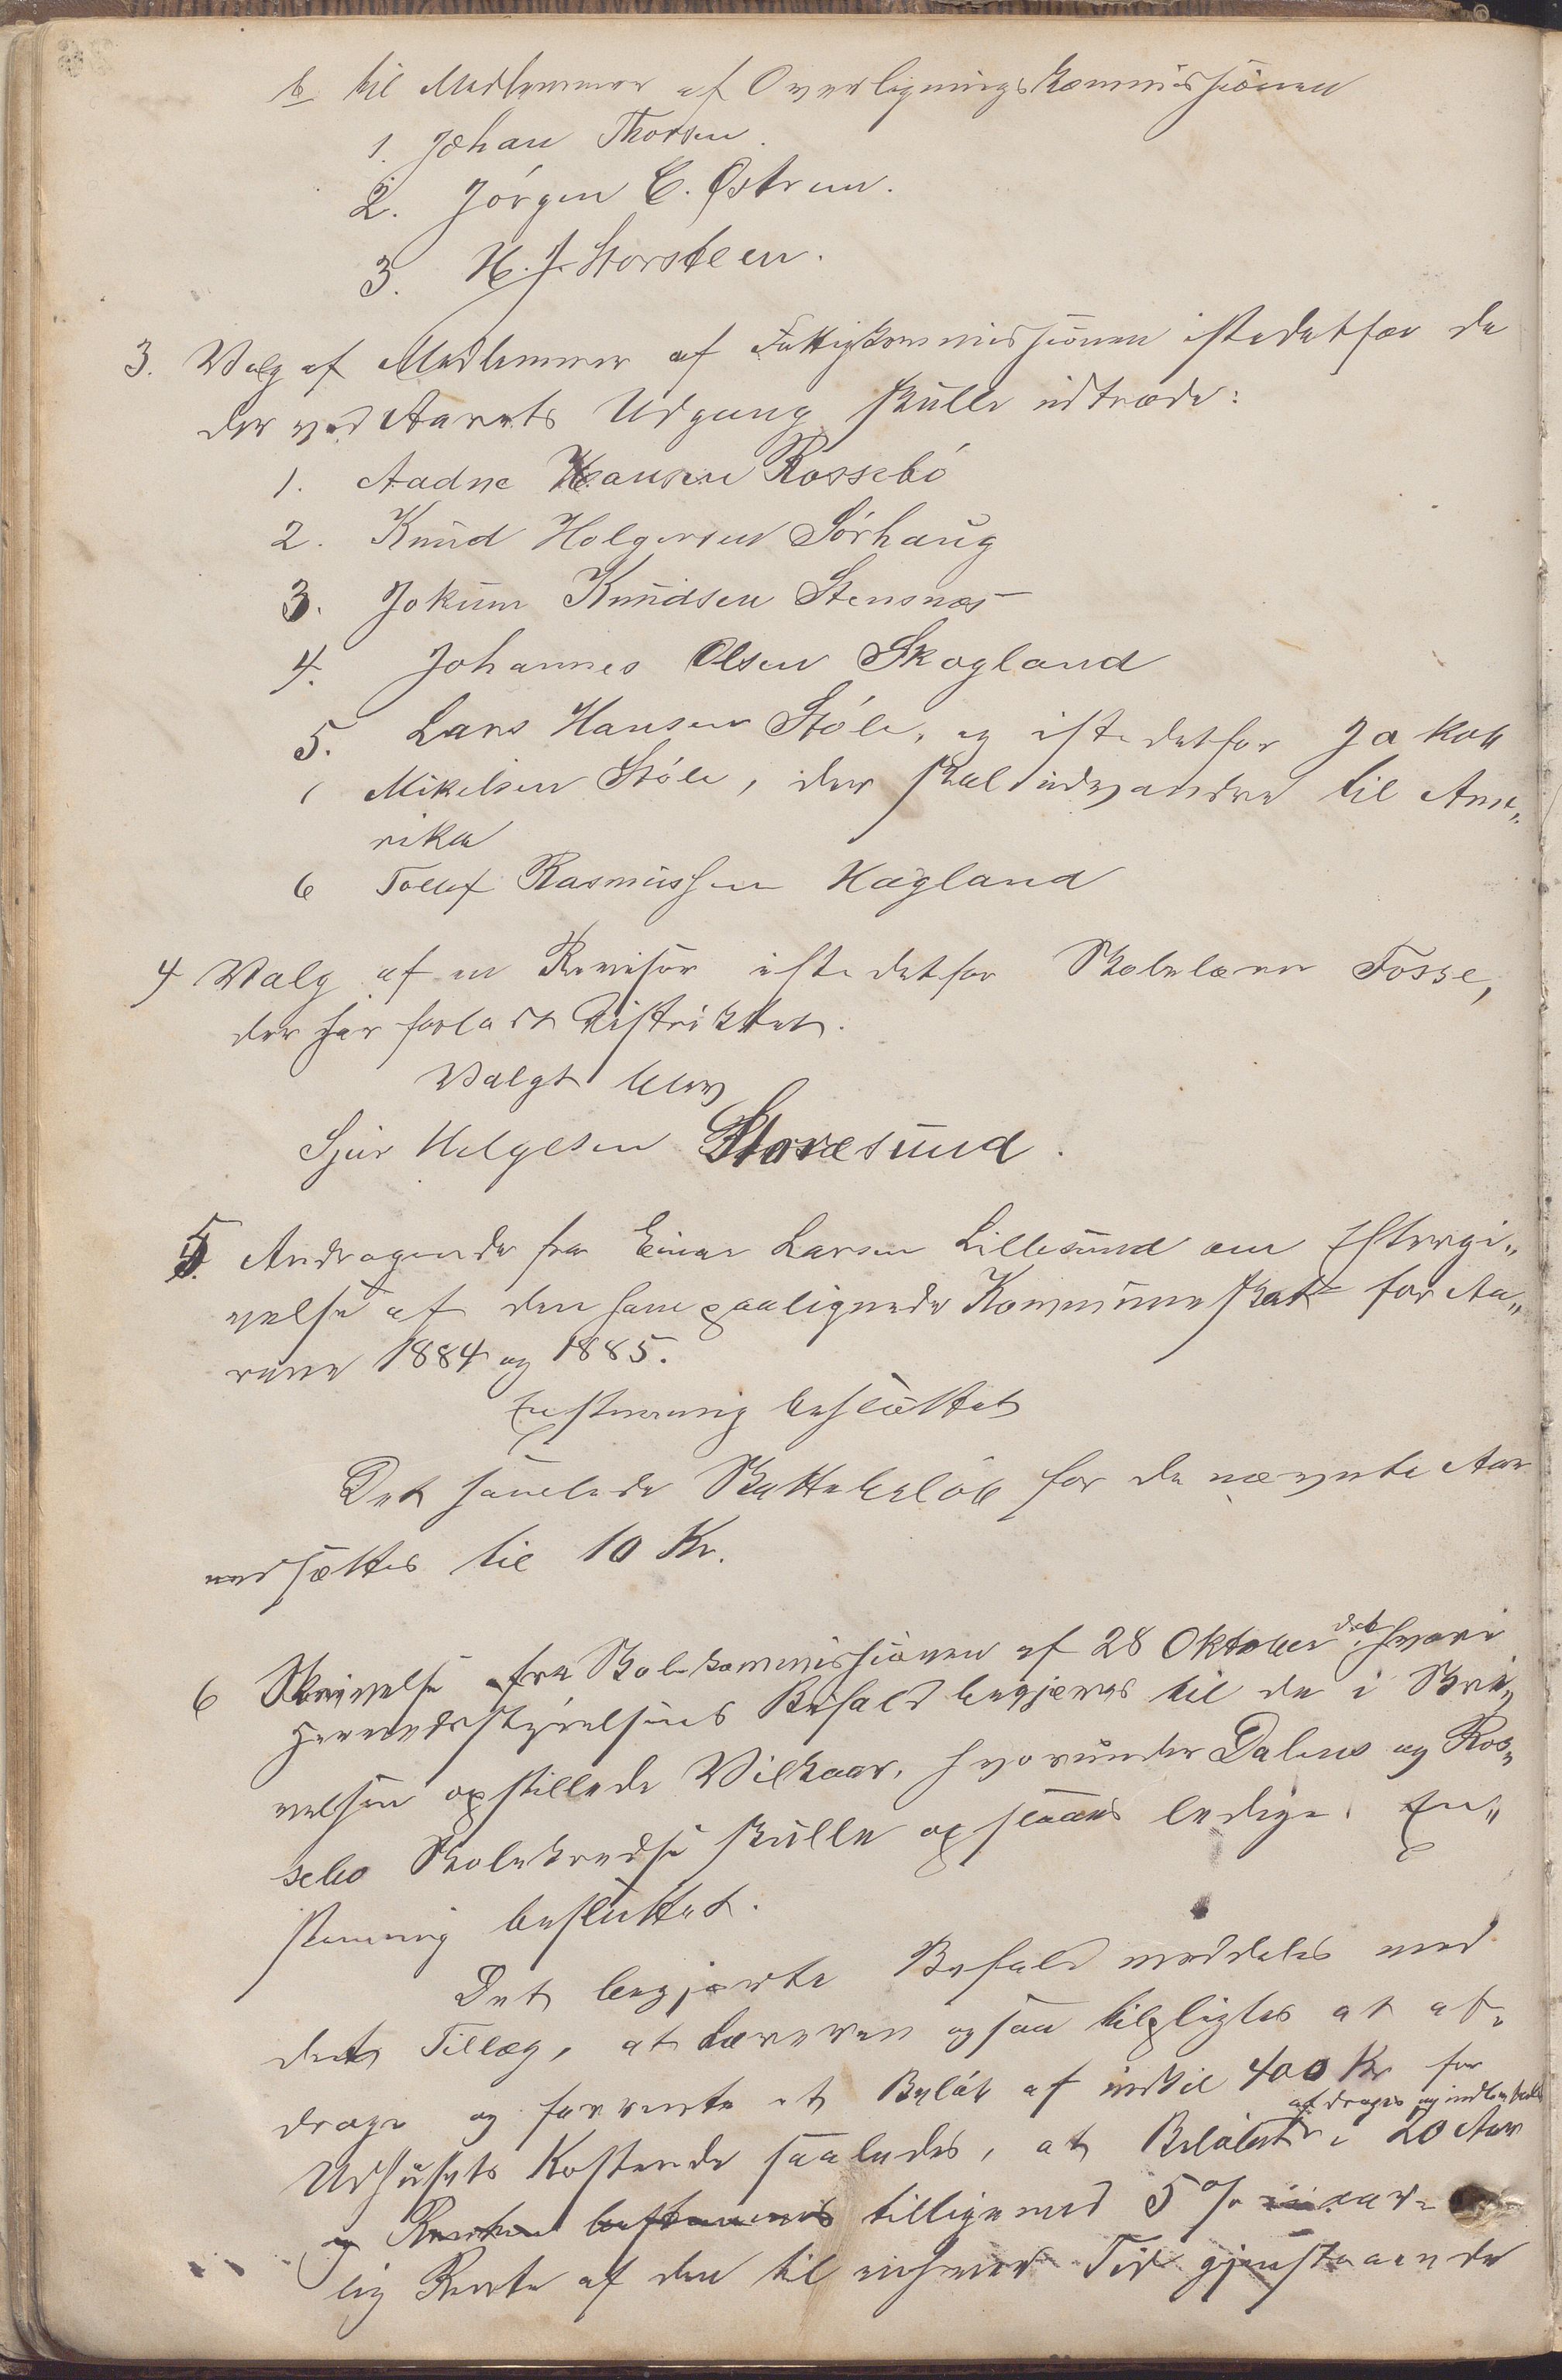 b til Medlemmer af Overligningskommissionen
1. Johan Thorsen.
2. Jörgen C. Østrem.
3. H. J. Storsteen.
3. Valg af Medlemmer af Fattigkommissionen istedetfor de
der ved Aarets Udgang skulle udtræde:
1. Aadne Hansen Rossebö
2. Knud Holgersen Sörhaug
3. Jokum Knudsen Stensnæs
4. Johannes Olsen Skogland
5. Lars Hansen Stöle, og istedetfor Jakob
Mikelsen Stöle, der skal udvandre til Ame„
rika
6 Tollef Rasmussen Hagland
4 Valg af en Revisor istedetfor Skolelærer Fosse,
der har forladt Distriktet.
Valgt blev
Sjur Helgesen Storesund.
5 Andragende fra Einar Larsen Lillesund om Eftergi„
velse af den ham paalignede Kommuneskat for Aa„
rene 1884 og 1885.
Enstemmig besluttet
Det samlede Skattebelöb for de nævnte Aar
nedsættes til 10 Kr.
6 Skrivelse fra Skolekommissionen af 28 Oktober d.A. hvori
Herredsstyrelsens Bifald begjæres til de i Skri„
velsen opstillede Vilkaar, hvorunder Dalens og Ros„
sebo Skolekredse skulle opslaaes ledige. En„
stemmig besluttet.
Det begjærte Bifald meddeles med
det Tillæg, at Læreren ogsaa tilpligtes at af„
drage og forrente et Belöb af indtil 400 Kr for
Udhusets Kostende saaledes, at Belöbet afdrages og indbetales i 20 Aar
og Renten bestemmes tilligemed 5 % aar„
lig Rente af den til enhver Tid gjenstaaende